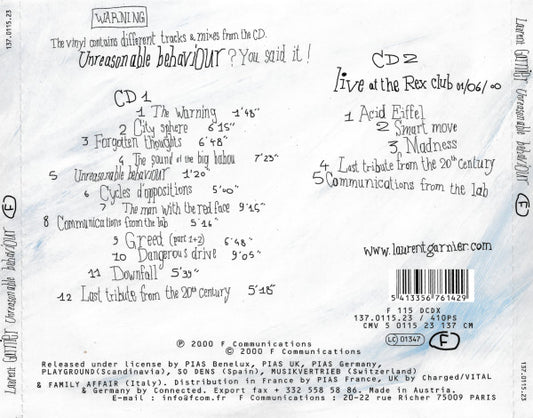 WARNING
The vinyl contains different tracks & mixes from the CD.
Unreasonable behaviour ? You said it !
CD 1
1 The Warning 1'48"
2 City sphere 6'15"
3 Forgotten thoughts 6'48"
4 The sound of the big babou 7'23"
5 Unreasonable behaviour 1'20"
6 Cycles d'oppositions 5'00"
7 The man with the red face 9'15"
8 Communications from the lab 5'16"
9 Greed (part 1+2) 6'48"
10 Dangerous drive 9'05"
11 Downfall 5'39"
12 Last tribute from the 20th century 5'18"
CD 2
live at the Rex club 01/06/00
1 Acid Eiffel
2 Smart move
3 Madness
4 Last tribute from the 20th century
5 Communications from the lab
www.laurentgarnier.com
5 413356 761429
F 115 DCDX
137.0115.23 / 410PS
CMV 5 0115 23 137 CM
LC 01347 F
℗ 2000 F Communications
© 2000 F Communications
Released under license by PIAS Benelux, PIAS UK, PIAS Germany,
PLAYGROUND(Scandinavia), SO DENS (Spain), MUSIKVERTRIEB (Switzerland)
& FAMILY AFFAIR (Italy). Distribution in France by PIAS France, UK by Charged/VITAL
& Germany by Connected. Export fax + 332 558 58 86. Made in Austria.
E-mail : info@fcom.fr F Communications : 20-22 rue Richer 75009 PARIS
137.0115.23
F
Laurent GARNIER Unreasonable behaviour
Laurent GARNIER Unreasonable behaviour
F
137.0115.23